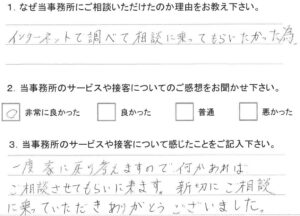 1. なぜ当事務所にご相談いただけたのか理由をお教え下さい。
インターネットで調べて相談に乗ってもらいたかった為。
2. 当事務所のサービスや接客についてのご感想をお聞かせ下さい。
○ 非常に良かった 良かった 普通 悪かった
3. 当事務所のサービスや接客について感じたことをご記入下さい。
一度家に戻り考えますので何かあれば
ご相談させてもらいに来ます。新切にご相談
に乗っていただきありがとうございました。